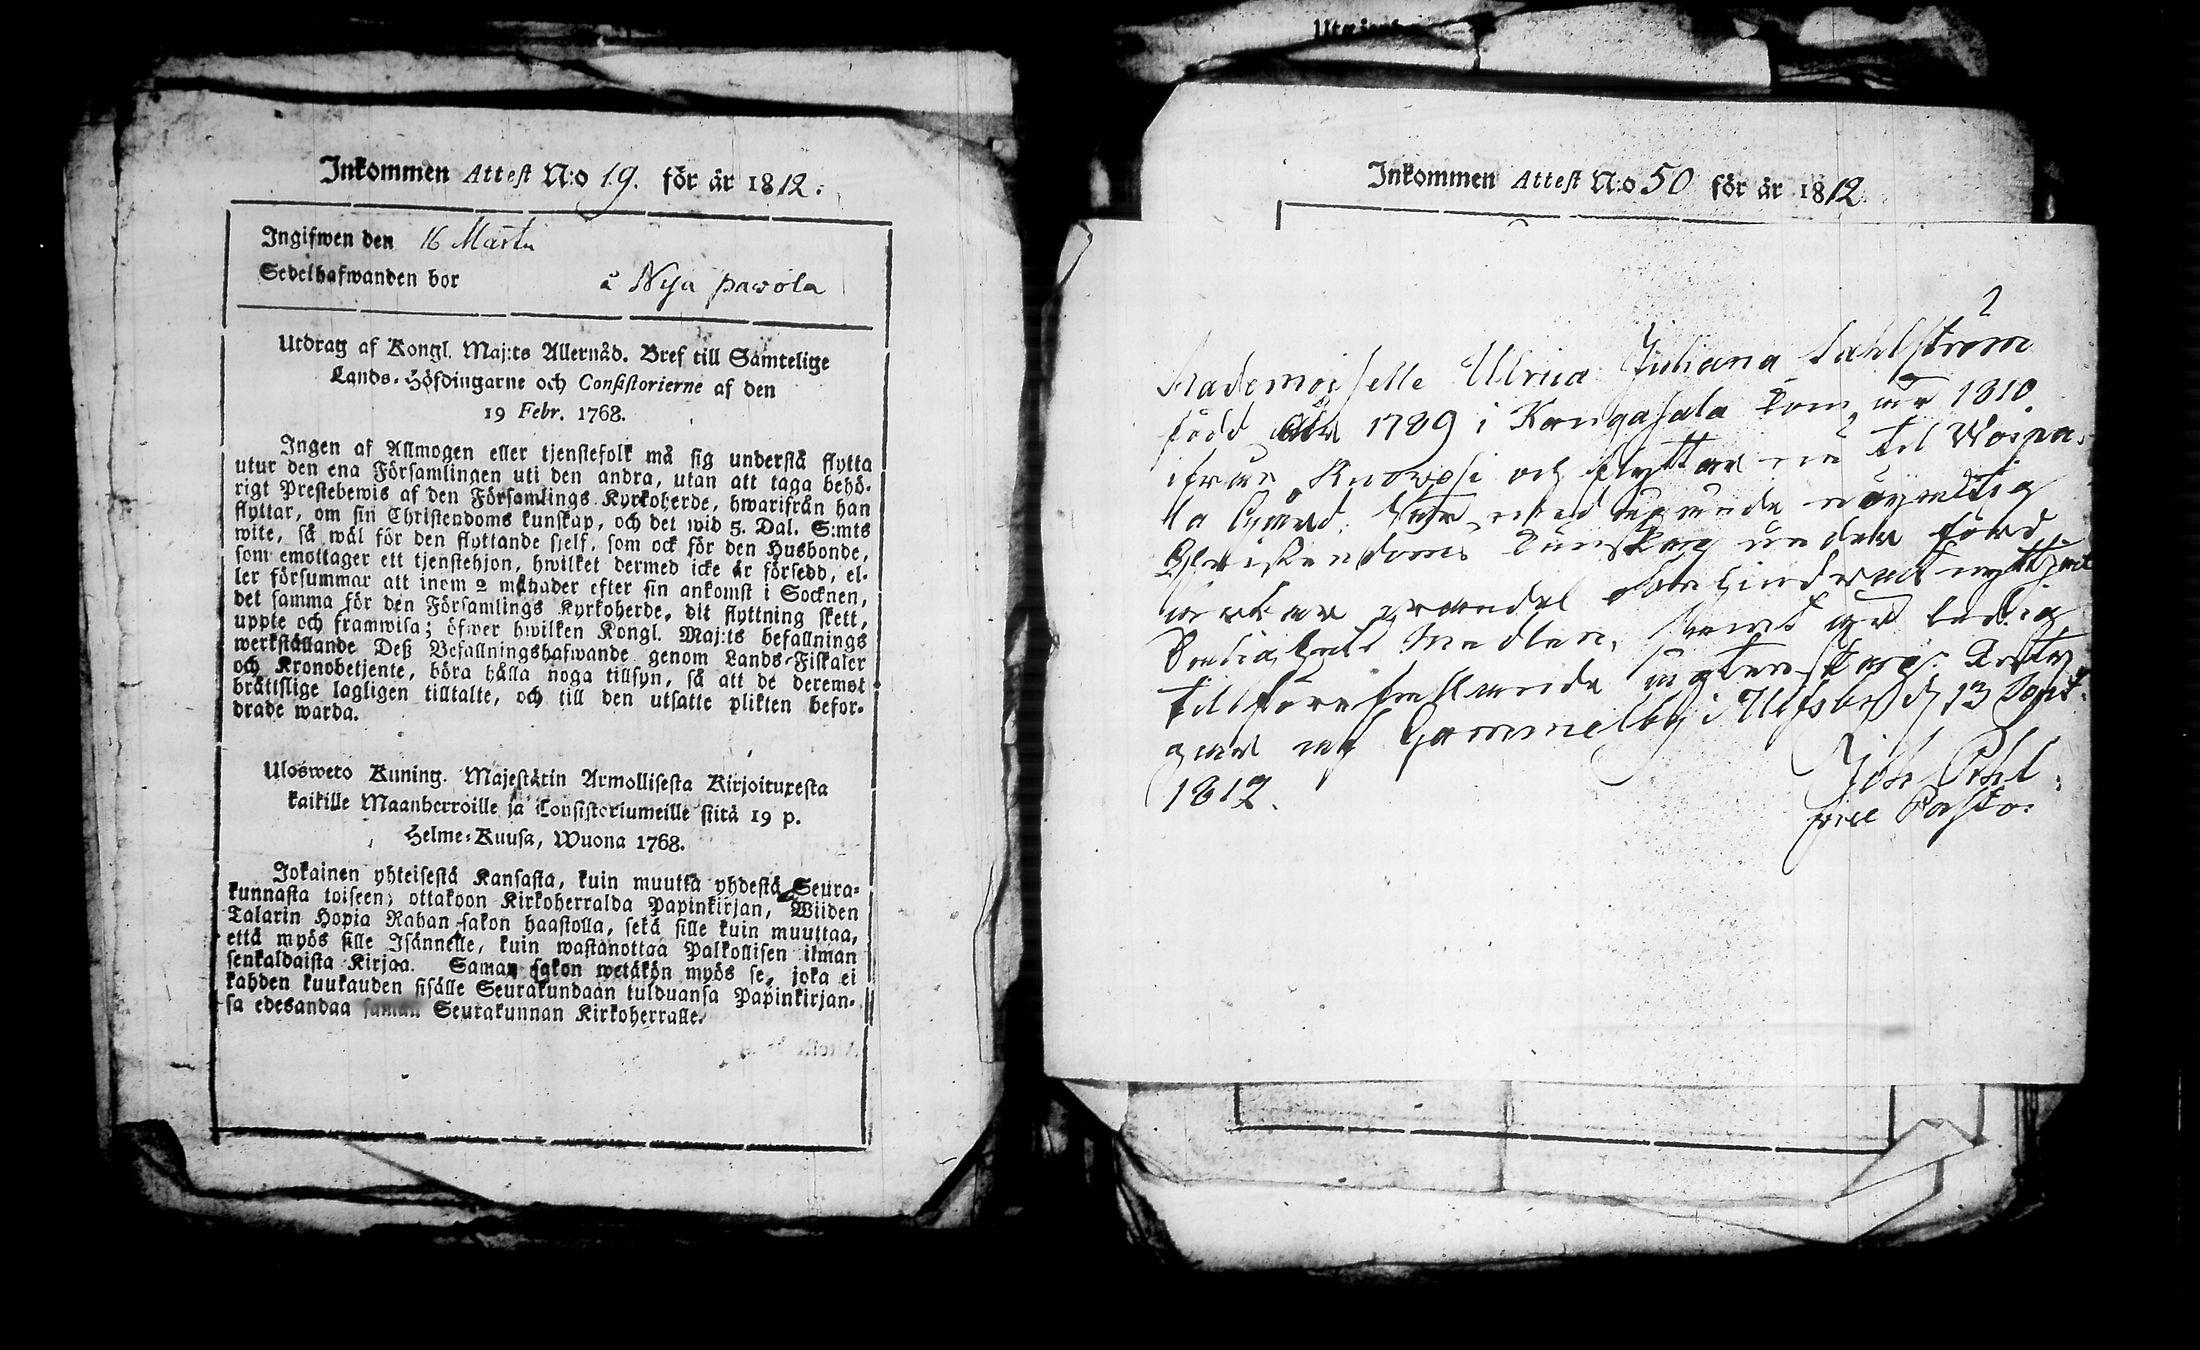 Inkommen Attest N:o 19. för år 1812.
Ingifwen den 16 Martii
Sedelhafwanden bor å Nya pavola
Utdrag af Kongl. Maj:ts Allernåd. Bref till Samtelige
Lands-Höfdingarne och Consistorierne af den
19 Febr. 1768.
Ingen af Allmogen eller tjenstefolk må sig understå flytta
utur den ena Församlingen uti den andra, utan att taga behö-
rigt Prestebewis af den Församlings Kyrkoherde, hwarifrån han
flyttar, om sin Christendoms kunskap, och det wid 5. Dal. S:mts
wite, så wäl för den flyttande sjelf, som ock för den Husbonde,
som emottager ett tjenstehjon, hwilket dermed icke är försedd, el-
ler försummar att inom 2 månader efter sin ankomst i Socknen,
det samma för den Församlings Kyrkoherde, dit flyttning skett,
uppte och framwisa; öfwer hwilken Kongl. Maj:ts befallnings
werkställande Deß Befallningshafwande genom Lands-Fiskaler
och Kronobetjente, böra hålla noga tillsyn, så att de deremot
bråttslige lagligen tilltalte, och till den utsatte plikten befor-
drade warda.
Ulosweto Kuning. Majestätin Armollisesta Kirjoituxesta
kaikille Maanherroille ja Consistoriumeille siitä 19 p.
Helme-Kuusa, Wuona 1768.
Jokainen yhteisestä Kansasta, kuin muutta yhdestä Seura-
kunnasta toiseen, ottakoon Kirkoherralda Papinkirjan, Wiiden
Talarin Hopia Rahan sakon haastolla, sekä sille kuin muuttaa,
että myös sille Isännelle, kuin wastanottaa Palkollisen ilman
senkaldaista Kirjaa. Saman sakon wetäkön myös se, joka ei
kahden kuukauden sisälle Seurakundaan tulduansa Papinkirjan-
sa edesandaa saman Seurakunnan Kirkoherralle.
Inkommen Attest N:o 50 för år 1812
Mademoiselle Ulrica Juliana Sahlström
född 1789 i Kangasala kom år 1810
ifrån och flyttar nu til
med
Christendoms kunskap under
Medlen, samt är ledig
till Äkta
gar af Gammelby i Ulfsby d 13 Sept.
1812.
Joh
Pastor